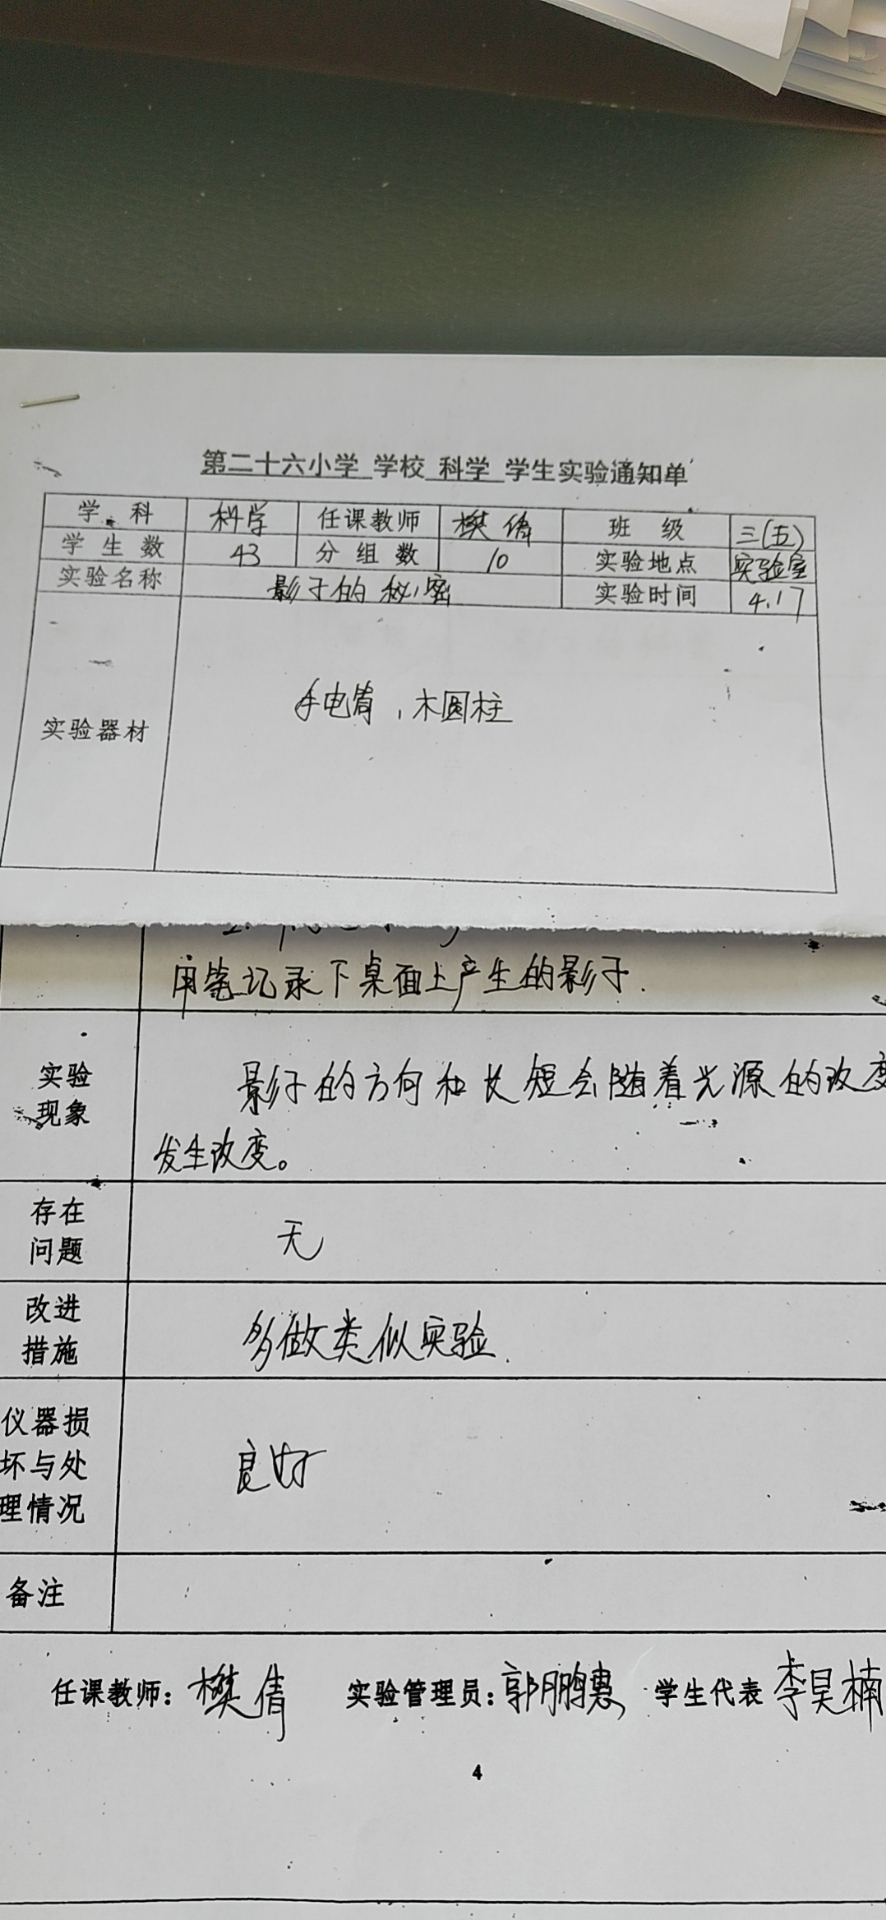 第二十六小学 学校 科学 学生实验通知单
学 科 科学 任课教师 樊倩 班 级 三(五)
学 生 数 43 分 组 数 10 实验地点 实验室
实验名称 影子的秘密 实验时间 4.17
实验器材 手电筒,木圆柱
用笔记录下桌面上产生的影子.
实验 影子的方向和长短会随着光源的改变
现象 发生改变。
存在
问题 无
改进
措施 多做类似实验.
仪器损
坏与处 良好
理情况
备注
任课教师: 樊倩 实验管理员: 郭鹏惠 学生代表 李昊楠
4